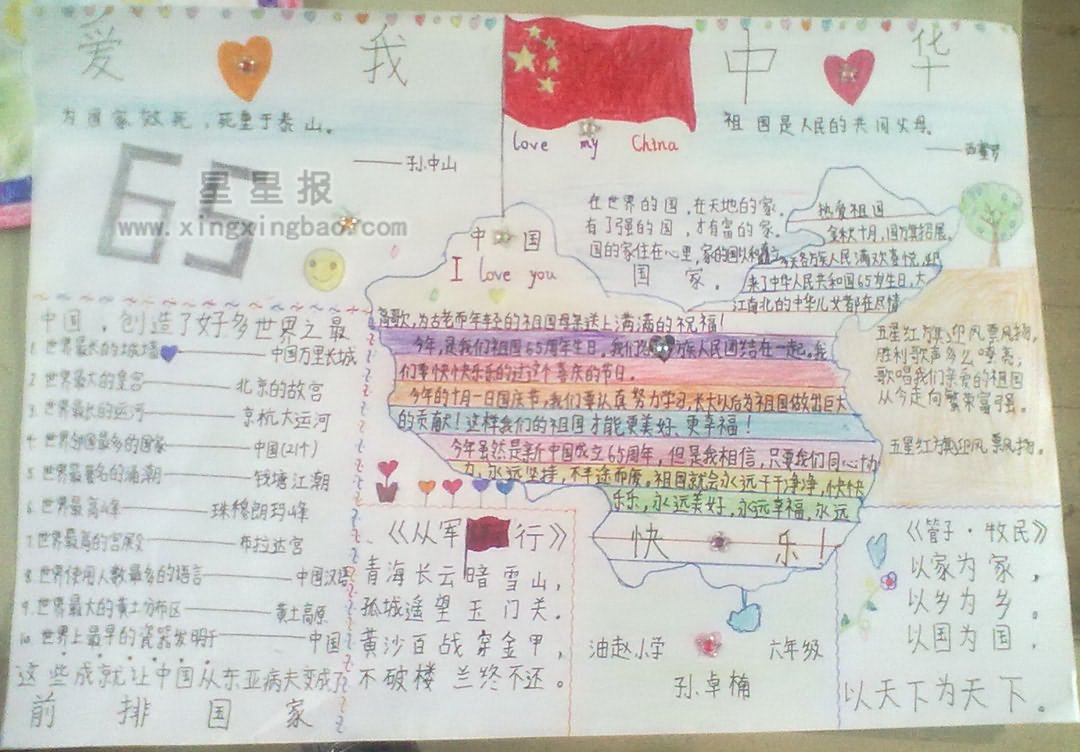 爱 我 中 华
为国家效死，死重于泰山。
——孙中山
祖国是人民的共同父母。
love my China
65
星星报
www.xingxingbao.com
在世界的国，在天地的家。
有了强的国，才有富的家。
国的家住在心里，家的国以和矗立
国家。
中国
I love you
热爱祖国
金秋十月，国旗招展。
来了中华人民共和国65岁生日，大
江南北的中华儿女都在尽情
高歌，为古老而年轻的祖国母亲送上满满的祝福！
今年，是我们祖国65周年生日，我们
族人民团结在一起。我
们要快快乐乐的过这个喜庆的节日。
今年的十月一日国庆节，我们要认真努力学习，长大以后为祖国做出巨大
的贡献！这样我们的祖国才能更美好、更幸福！
今年虽然是新中国成立65周年，但是我相信，只要我们同心协
力、永远坚持，不半途而废，祖国就会永远干干净净，快快
乐乐，永远美好，永远幸福，永远
快 乐！
中国，创造了好多世界之最
1. 世界最长的城墙——中国万里长城
2. 世界最大的皇宫——北京的故宫
3. 世界最长的运河——京杭大运河
4. 世界邻国最多的国家——中国(21个)
5. 世界最著名的涌潮——钱塘江潮
6. 世界最高峰——珠穆朗玛峰
7. 世界最高的宫殿——布拉达宫
8. 世界使用人数最多的语言——中国汉语
9. 世界最大的黄土分布区——黄土高原
10. 世界上最早的瓷器发明于——中国
这些成就让中国从东亚病夫变成了
前排国家
《从军行》
青海长云暗雪山，
孤城遥望玉门关。
黄沙百战穿金甲，
不破楼兰终不还。
油赵小学 六年级
孙卓楠
五星红旗迎风飘扬，
胜利歌声多么嘹亮，
歌唱我们亲爱的祖国
从今走向繁荣富强。
五星红旗迎风飘扬。
《管子·牧民》
以家为家，
以乡为乡。
以国为国，
以天下为天下。